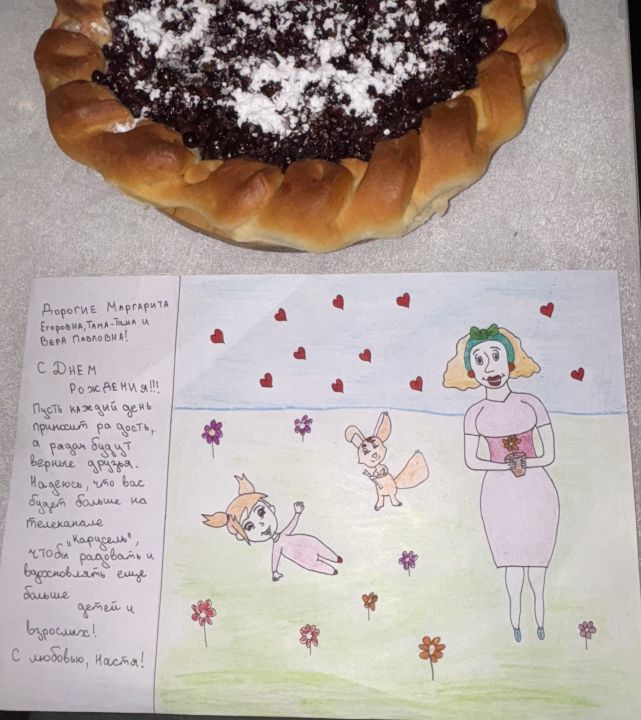 Дорогие Маргарита
Егоровна, Тама-Тама и
Вера Павловна!
С Днем
рождения!!!
Пусть каждый день
приносит радость,
а рядом будут
верные друзья.
Надеюсь, что вас
будет больше на
телеканале
„Карусель",
чтобы радовать и
вдохновлять еще
больше
детей и
взрослых!
С любовью, Настя!